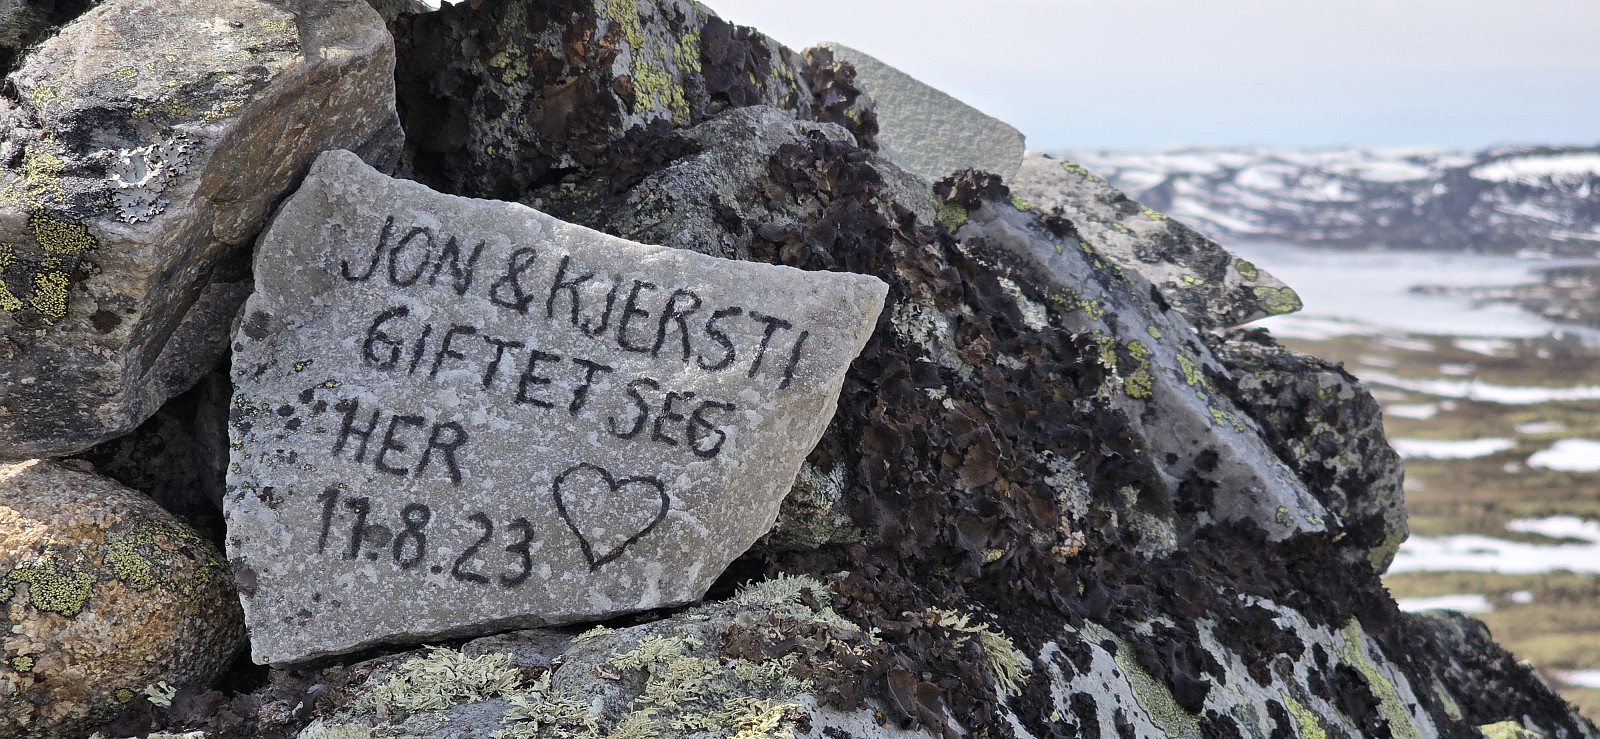 JON & KJERSTI
GIFTET SEG
HER
11.8.23